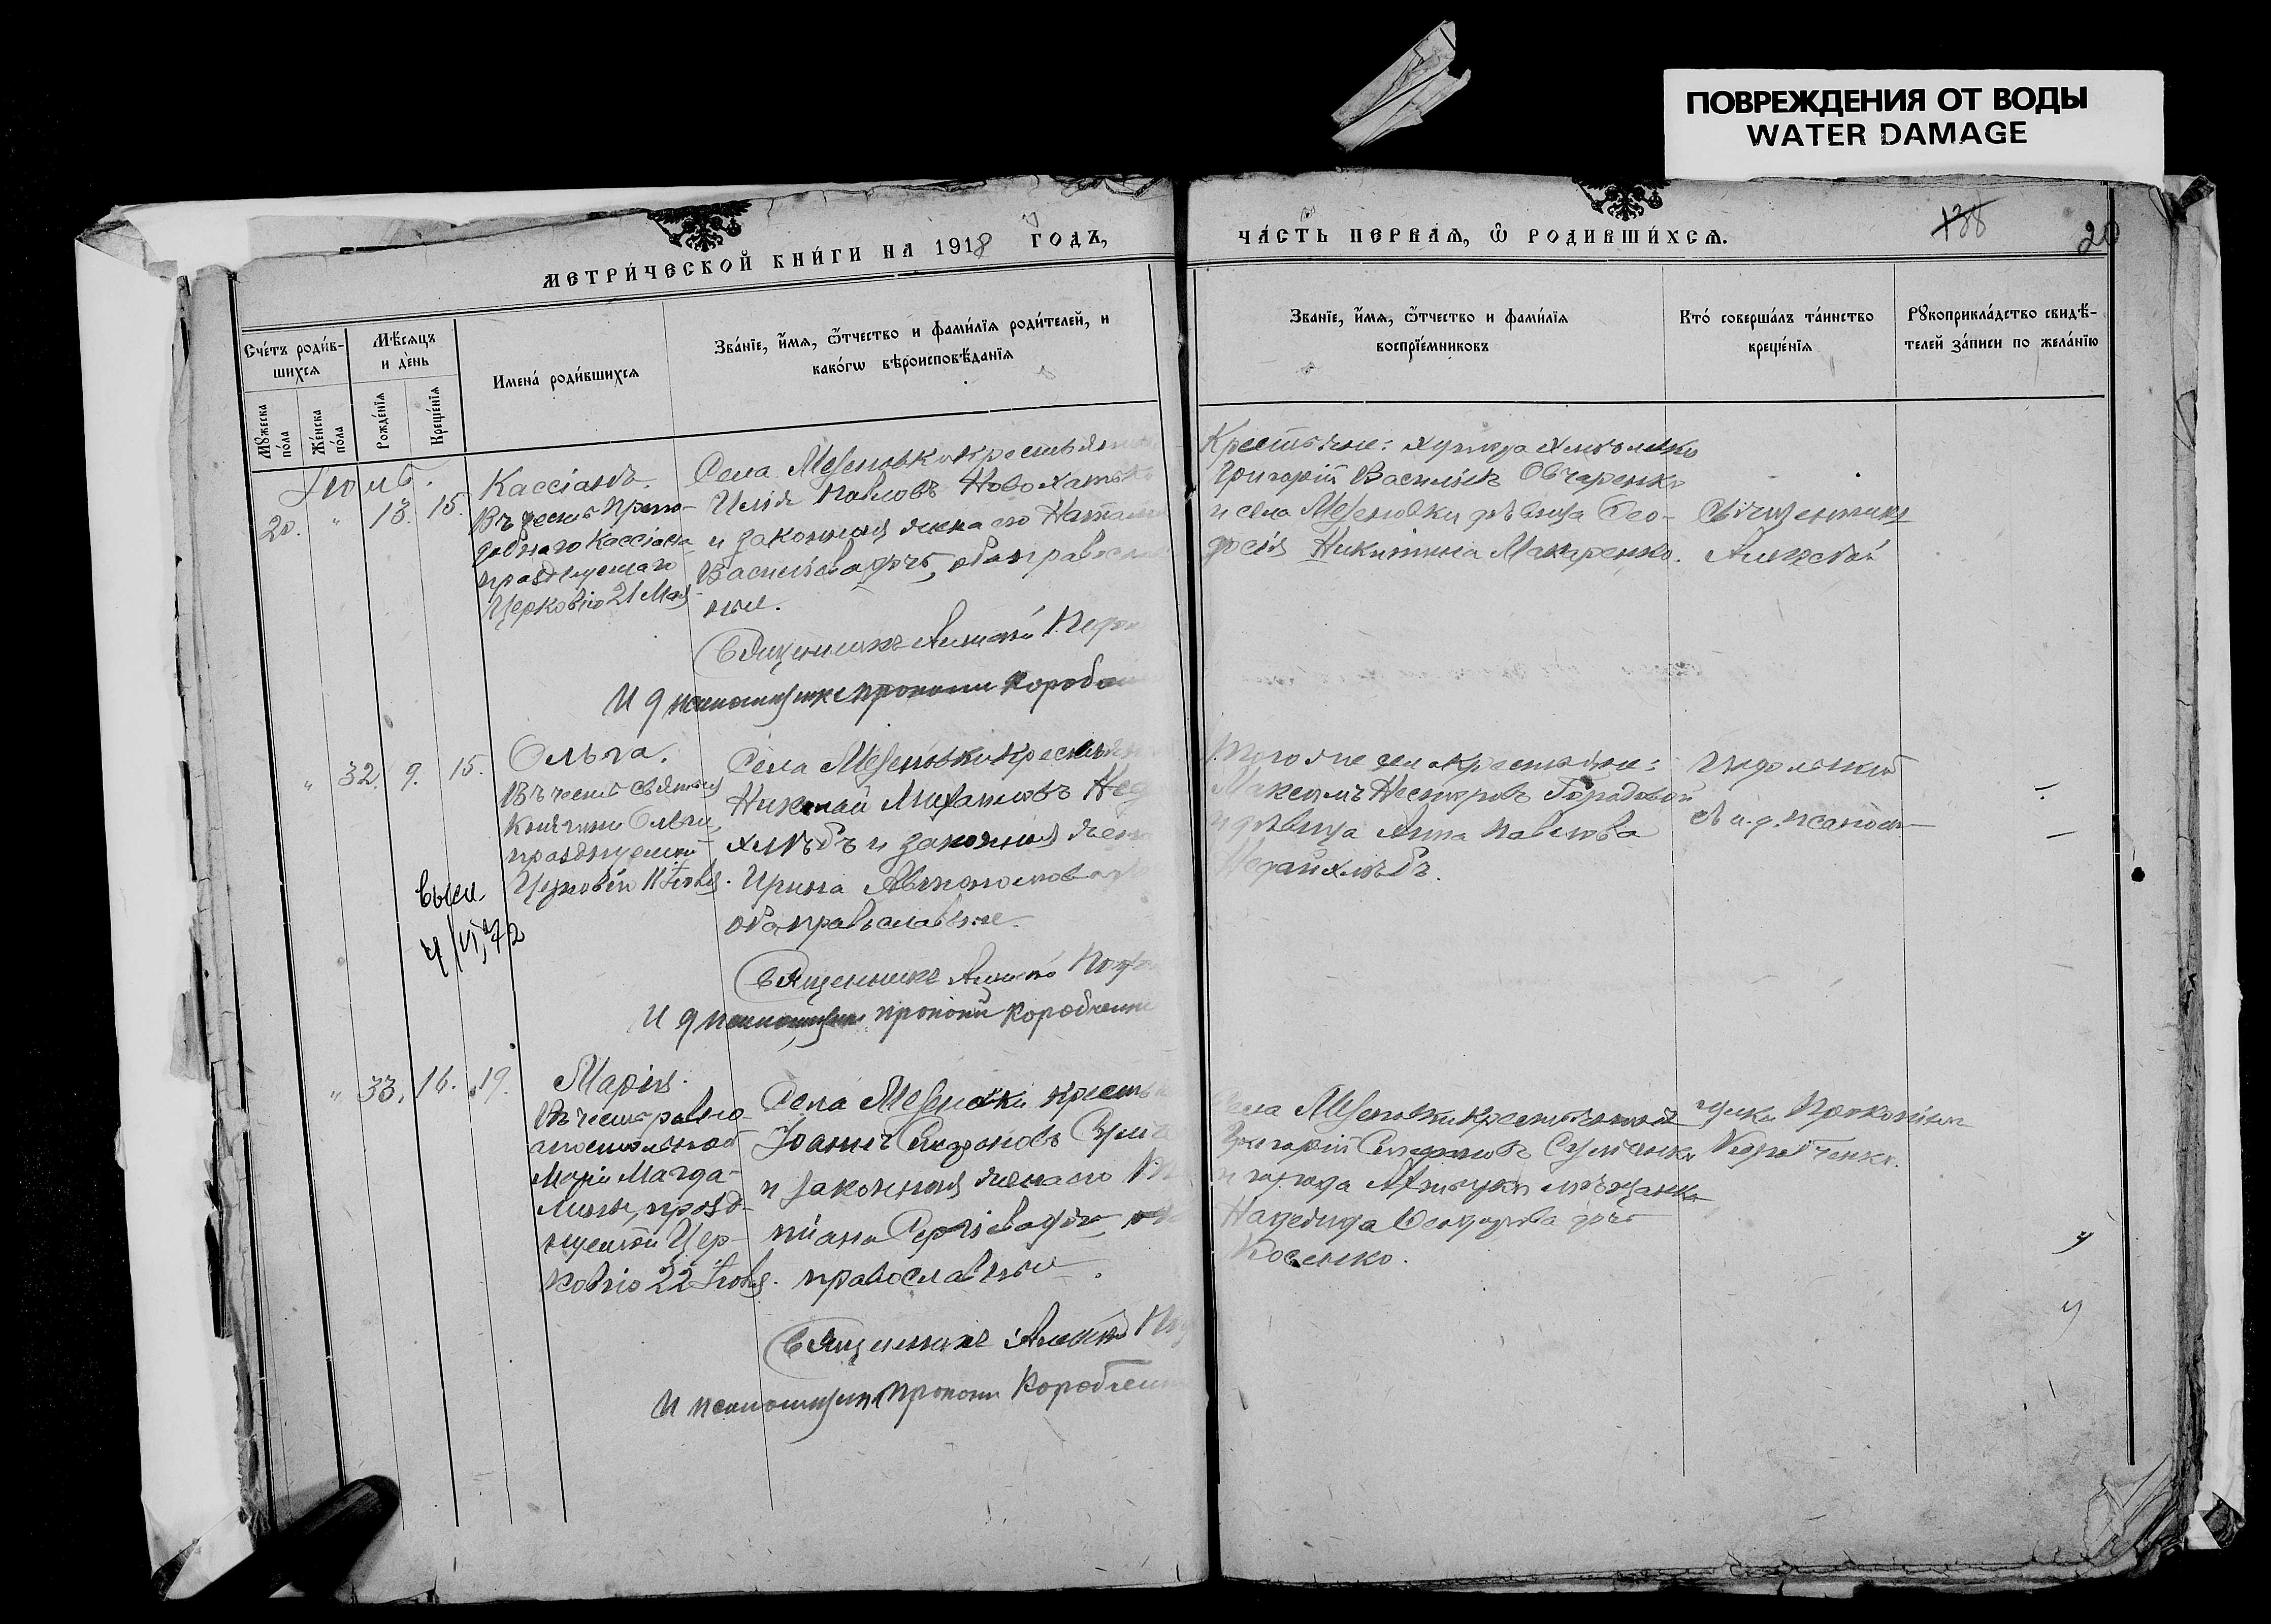 ПОВРЕЖДЕНИЯ ОТ ВОДЫ
WATER DAMAGE
МЕТРИ́ЧЕСКОЙ КНИ́ГИ НА 1918 ГОДЪ,
ЧА́СТЬ ПЕРВАѦ, Ѡ РОДИВШИ́ХСѦ.
138
20
Сче́тъ роди́в-
шихсѧ
Мꙋжеска
по́ла
Же́нска
по́ла
Мѣ́сѧцъ
и де́нь
Рожде́нїѧ
Креще́нїѧ
Имена́ роди́вшихсѧ
Зва́нїе, и҆́мѧ, ѻ҆́тчество и фами́лїѧ роди́телей, и
како́гѡ вѣроисповѣ́данїѧ
Званїе, и҆́мѧ, ѻ҆́тчество и фами́лїѧ
воспрїе́мниковъ
Кто́ соверша́лъ та́инство
креще́нїѧ
Рꙋкоприкла́дство свидѣ́-
телей за́писи по жела́нїю
Іюнь.
20. " 13. 15.
Кассіанъ.
Въ честь препо-
добнаго Кассіана
празднуемаго
Церковію 21 Мая
Села Мезеновки крестьянинъ
Илія Павловъ Новохатько
и законная жена его Наталія
Васильева дочь, оба православ
ные.
Священникъ Алексій
И д псаломщика Прокопій Коробченко
Крестьяне: хутора
Григорій Васильевъ Овчаренко
и села Мезеновки дѣвица Ѳео-
досія Никитина Макаренко.
Священникъ
Алексѣй
" 32. 9. 15.
Ольга.
Въ честь святыя
Княгини Ольги,
празднуемой
Церковію 11 Іюля.
Села Мезеновки крестьянинъ
Николай Михаиловъ Нед
хлѣбъ и законная жена
Ирина Автономова
оба православные.
Священникъ Алексѣй
И д псаломщика Прокопій Коробченко
Того же села крестьяне:
Максимъ Несторовъ Городовой
и дѣвица Анна Павлова
Недайхлѣбъ.
съ и. д. псалом-
выд.
4/VI 72
" 33. 16. 19.
Марія.
Въ честь равно-
апостольной
Маріи Магда-
лины, празд-
нуемой Цер-
ковію 22 Іюля.
Села Мезеновки крестья
Іоаннъ Стефановъ
и законная жена его
Сергіева дочь,
православные.
Священникъ Алексѣй
И псаломщикъ Прокопій Коробченко
Села Мезеновки крестьянинъ
Григорій Стефановъ
и города Ахтырки мѣщанка
Надежда дочь
Косенко.
щика Прокопіемъ
Коробченко.